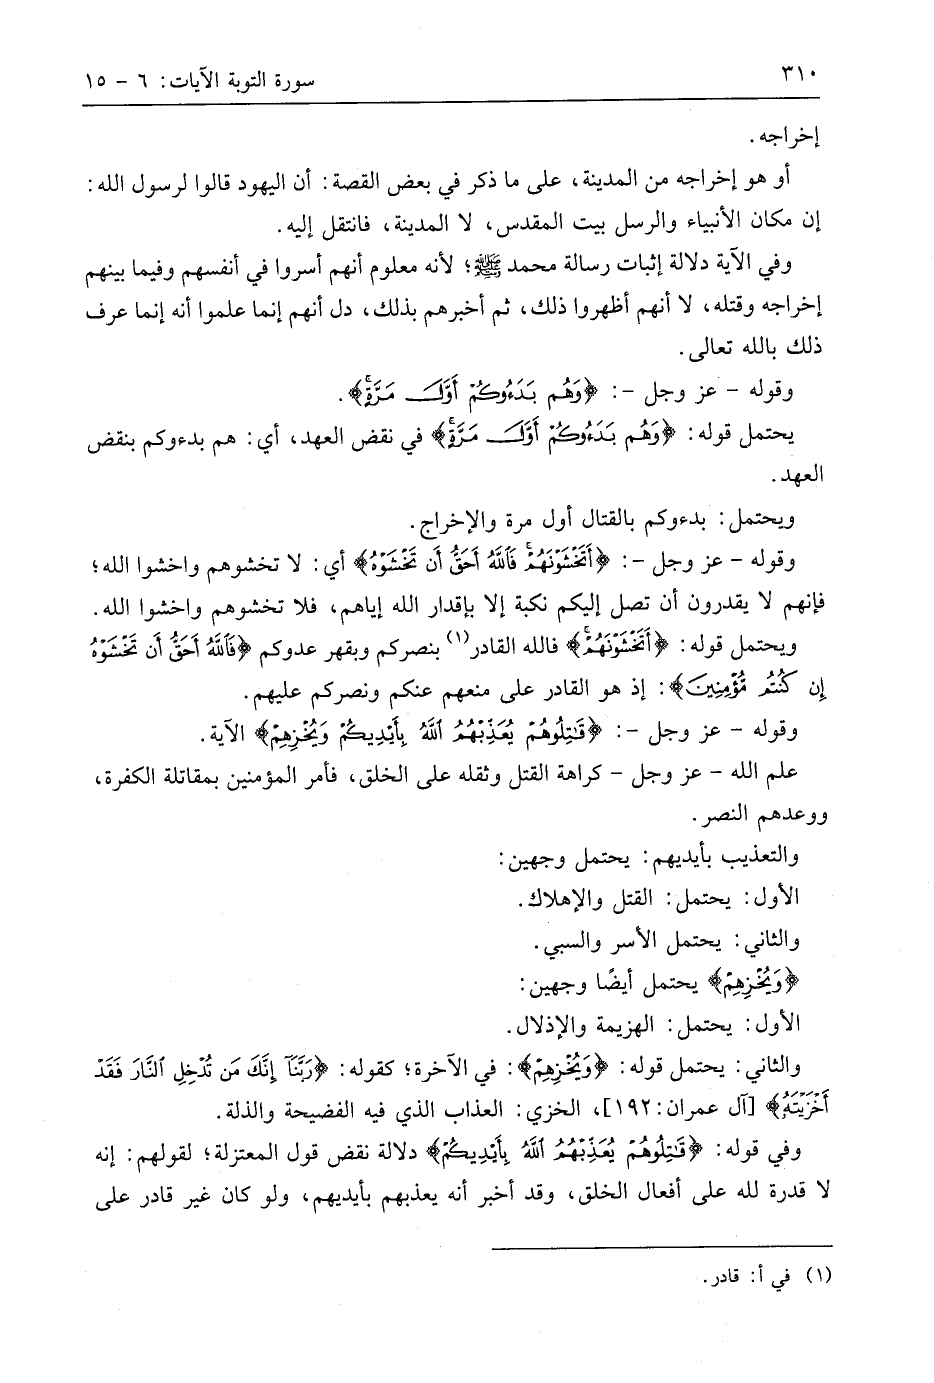 ٣١٠
سورة التوبة الآيات: ٦ - ١٥
إخراجه.
أو هو إخراجه من المدينة، على ما ذكر في بعض القصة: أن اليهود قالوا لرسول الله:
إن مكان الأنبياء والرسل بيت المقدس، لا المدينة، فانتقل إليه.
وفي الآية دلالة إثبات رسالة محمد ﷺ؛ لأنه معلوم أنهم أسروا في أنفسهم وفيما بينهم
إخراجه وقتله، لا أنهم أظهروا ذلك، ثم أخبرهم بذلك، دل أنهم إنما علموا أنه إنما عرف
ذلك بالله تعالى.
وقوله - عز وجل -: ﴿وَهُم بَدَءُوكُمْ أَوَّلَ مَرَّةٍ﴾.
يحتمل قوله: ﴿وَهُم بَدَءُوكُمْ أَوَّلَ مَرَّةٍ﴾ في نقض العهد، أي: هم بدءوكم بنقض
العهد.
ويحتمل: بدءوكم بالقتال أول مرة والإخراج.
وقوله - عز وجل -: ﴿أَتَخْشَوْنَهُمْ فَاللَّهُ أَحَقُّ أَن تَخْشَوْهُ﴾ أي: لا تخشوهم واخشوا الله؛
فإنهم لا يقدرون أن تصل إليكم نكبة إلا بإقدار الله إياهم، فلا تخشوهم واخشوا الله.
ويحتمل قوله: ﴿أَتَخْشَوْنَهُمْ﴾ فالله القادر(١) بنصركم وبقهر عدوكم ﴿فَاللَّهُ أَحَقُّ أَن تَخْشَوْهُ
إِن كُنتُم مُّؤْمِنِينَ﴾: إذ هو القادر على منعهم عنكم ونصركم عليهم.
وقوله - عز وجل -: ﴿قَاتِلُوهُمْ يُعَذِّبْهُمُ اللَّهُ بِأَيْدِيكُمْ وَيُخْزِهِمْ﴾ الآية.
علم الله - عز وجل - كراهة القتل وثقله على الخلق، فأمر المؤمنين بمقاتلة الكفرة،
ووعدهم النصر.
والتعذيب بأيديهم: يحتمل وجهين:
الأول: يحتمل: القتل والإهلاك.
والثاني: يحتمل الأسر والسبي.
﴿وَيُخْزِهِمْ﴾ يحتمل أيضًا وجهين:
الأول: يحتمل: الهزيمة والإذلال.
والثاني: يحتمل قوله: ﴿وَيُخْزِهِمْ﴾: في الآخرة؛ كقوله: ﴿رَبَّنَا إِنَّكَ مَن تُدْخِلِ النَّارَ فَقَدْ
أَخْزَيْتَهُ﴾ [آل عمران: ١٩٢]، الخزي: العذاب الذي فيه الفضيحة والذلة.
وفي قوله: ﴿قَاتِلُوهُمْ يُعَذِّبْهُمُ اللَّهُ بِأَيْدِيكُمْ﴾ دلالة نقض قول المعتزلة؛ لقولهم: إنه
لا قدرة لله على أفعال الخلق، وقد أخبر أنه يعذبهم بأيديهم، ولو كان غير قادر على
(١) في أ: قادر.